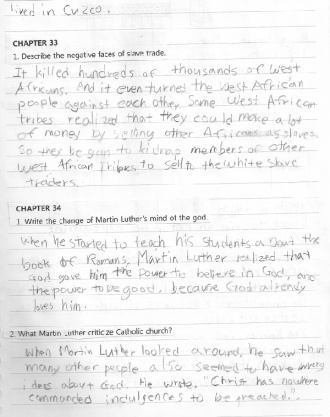 lived in Cuzco.
CHAPTER 33
1. Describe the negative faces of slave trade.
It killed hundreds of thousands of West
Africans. And it even turned the West African
people against each other. Some West African
tribes realized that they could make a lot
of money by selling other Africans as slaves.
So they began to kidnap members of other
West African tribes to sell to the white slave
traders.
CHAPTER 34
1. Write the change of Martin Luther's mind of the god
When he started to teach his students about the
book of Romans, Martin Luther realized that
God gave him the power to believe in God, and
the power to be good, because God already
loves him.
2. What Martin Luther criticize Catholic church?
When Martin Luther looked around, he saw that
many other people also seemed to have wrong
ideas about God. He wrote, "Christ has nowhere
commanded indulgences to be preached."